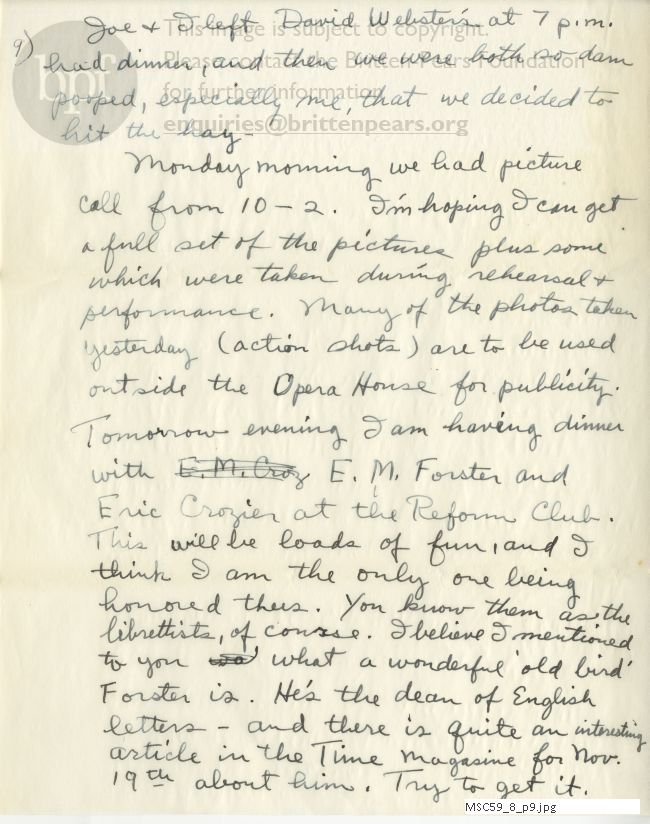 9)
Joe + I left David Webster's at 7 p.m.
had dinner, and then we were both so dam
pooped, especially me, that we decided to
hit the hay -
Monday morning we had picture
call from 10 - 2. I'm hoping I can get
a full set of the pictures plus some
which were taken during rehearsal +
performance. Many of the photos taken
yesterday (action shots) are to be used
outside the Opera House for publicity.
Tomorrow evening I am having dinner
with E.M. Croz E. M. Forster and
Eric Crozier at the Reform Club.
This will be loads of fun, and I
think I am the only one being
honored thus. You know them as the
librettists, of course. I believe I mentioned
to you what a wonderful 'old bird'
Forster is. He's the dean of English
letters - and there is quite an interesting
article in the Time Magazine for Nov.
19th about him. Try to get it.
bpf
This image is subject to copyright.
Please contact the Britten-Pears Foundation
for further information
enquiries@brittenpears.org
MSC59_8_p9.jpg